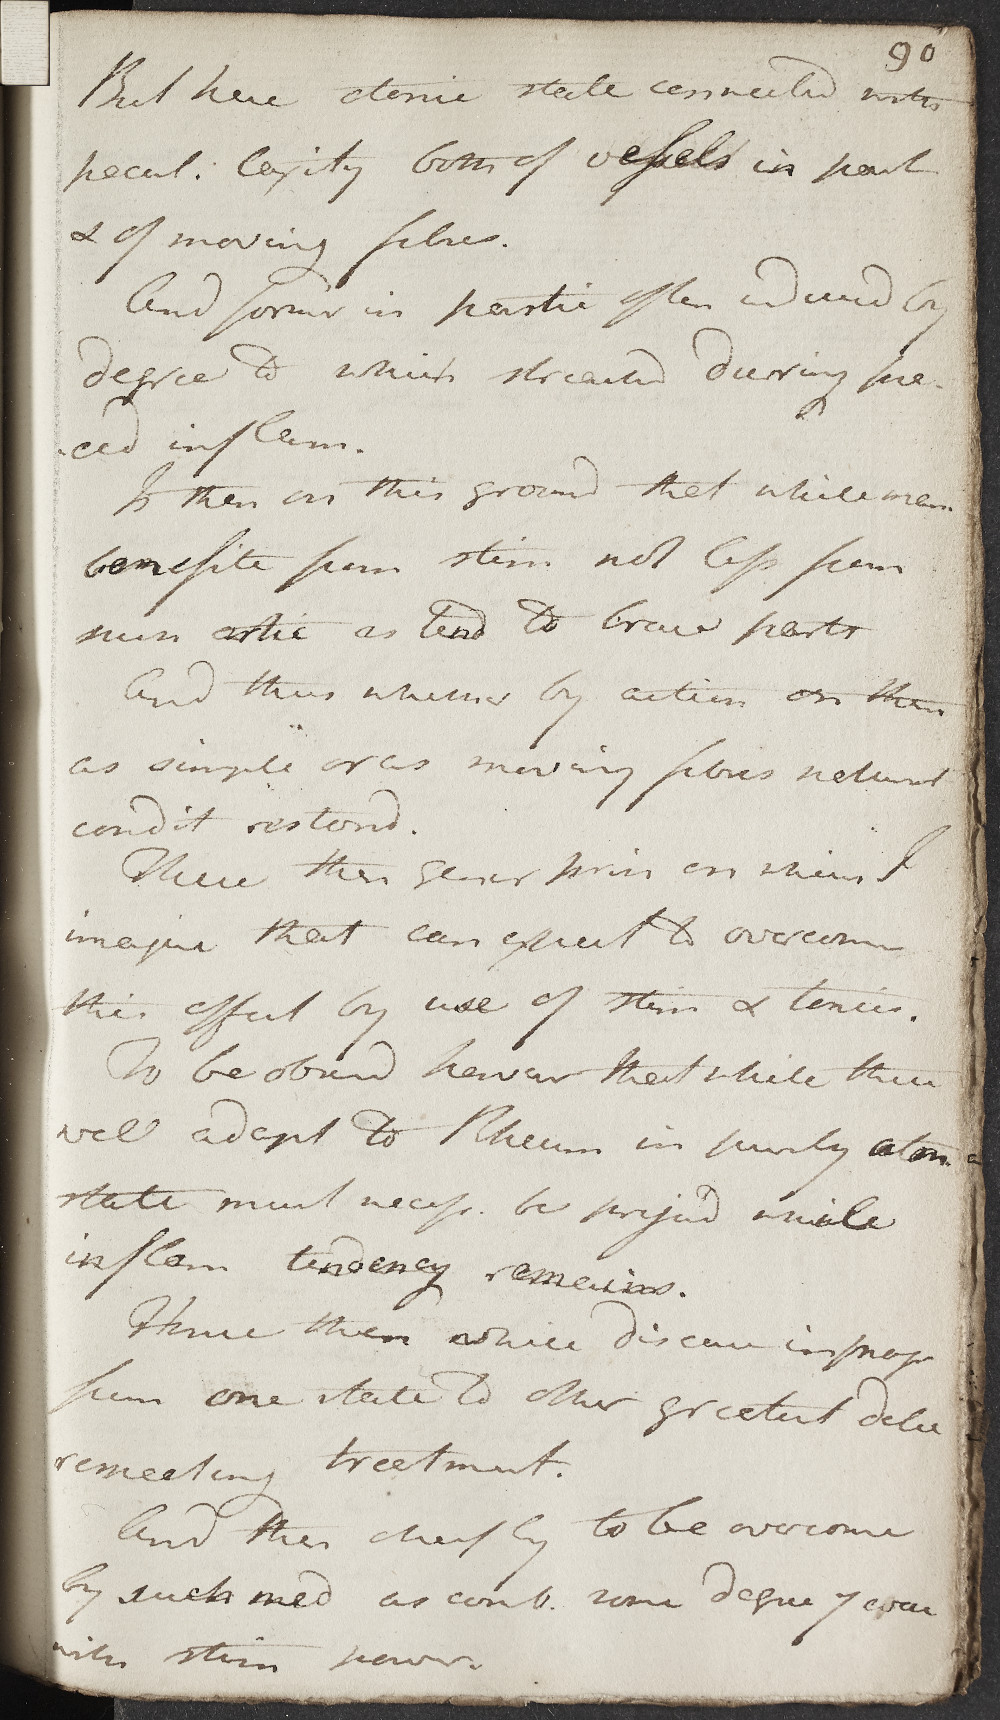 90
But here atonic state connected with
pecul. laxity both of vessels in part
& of moving fibres.
And former in partic often induced by
degree to which streatched during pre-
-ced inflam.
Is then on this ground that while man
benefite from stim not less from
num astic as tend to brace parts
And thus whether by action on them
as simple or as moving fibres natural
condit restored.
These then gener prin on which I
imagine that can expect to overcome
this effect by use of stim & tonics.
To be observd however that while these
well adapt to Rheum in purely atonic
state must necess. be prejud while
inflam tendency remains.
Hence then while disease in prog
from one state to other greatest delic
respecting treatment.
And then chiefly to be overcome
by such med as comb. some degree of
with stim power.